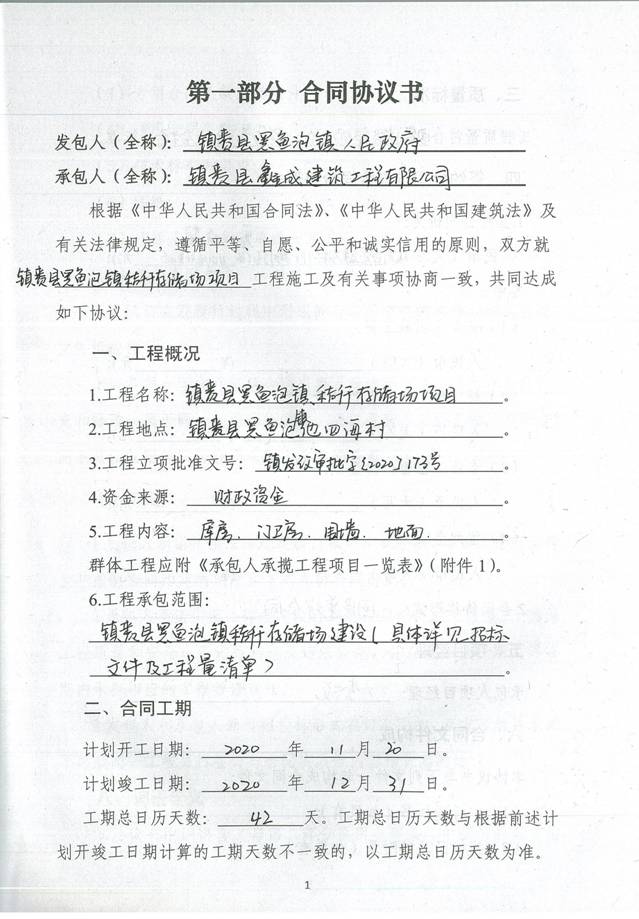 第一部分 合同协议书
发包人（全称）：镇赉县黑鱼泡镇人民政府
承包人（全称）：镇赉县鑫成建筑工程有限公司
根据《中华人民共和国合同法》、《中华人民共和国建筑法》及
有关法律规定，遵循平等、自愿、公平和诚实信用的原则，双方就
镇赉县黑鱼泡镇秸秆存储场项目 工程施工及有关事项协商一致，共同达成
如下协议：
一、工程概况
1.工程名称：镇赉县黑鱼泡镇秸秆存储场项目。
2.工程地点：镇赉县黑鱼泡镇四海村。
3.工程立项批准文号：镇发改审批字〔2020〕173号。
4.资金来源：财政资金。
5.工程内容：库房、门卫房、围墙、地面。
群体工程应附《承包人承揽工程项目一览表》（附件1）。
6.工程承包范围：
镇赉县黑鱼泡镇秸秆存储场建设（具体详见招标
文件及工程量清单）
二、合同工期
计划开工日期：2020 年 11 月 20 日。
计划竣工日期：2020 年 12 月 31 日。
工期总日历天数：42 天。工期总日历天数与根据前述计
划开竣工日期计算的工期天数不一致的，以工期总日历天数为准。
1